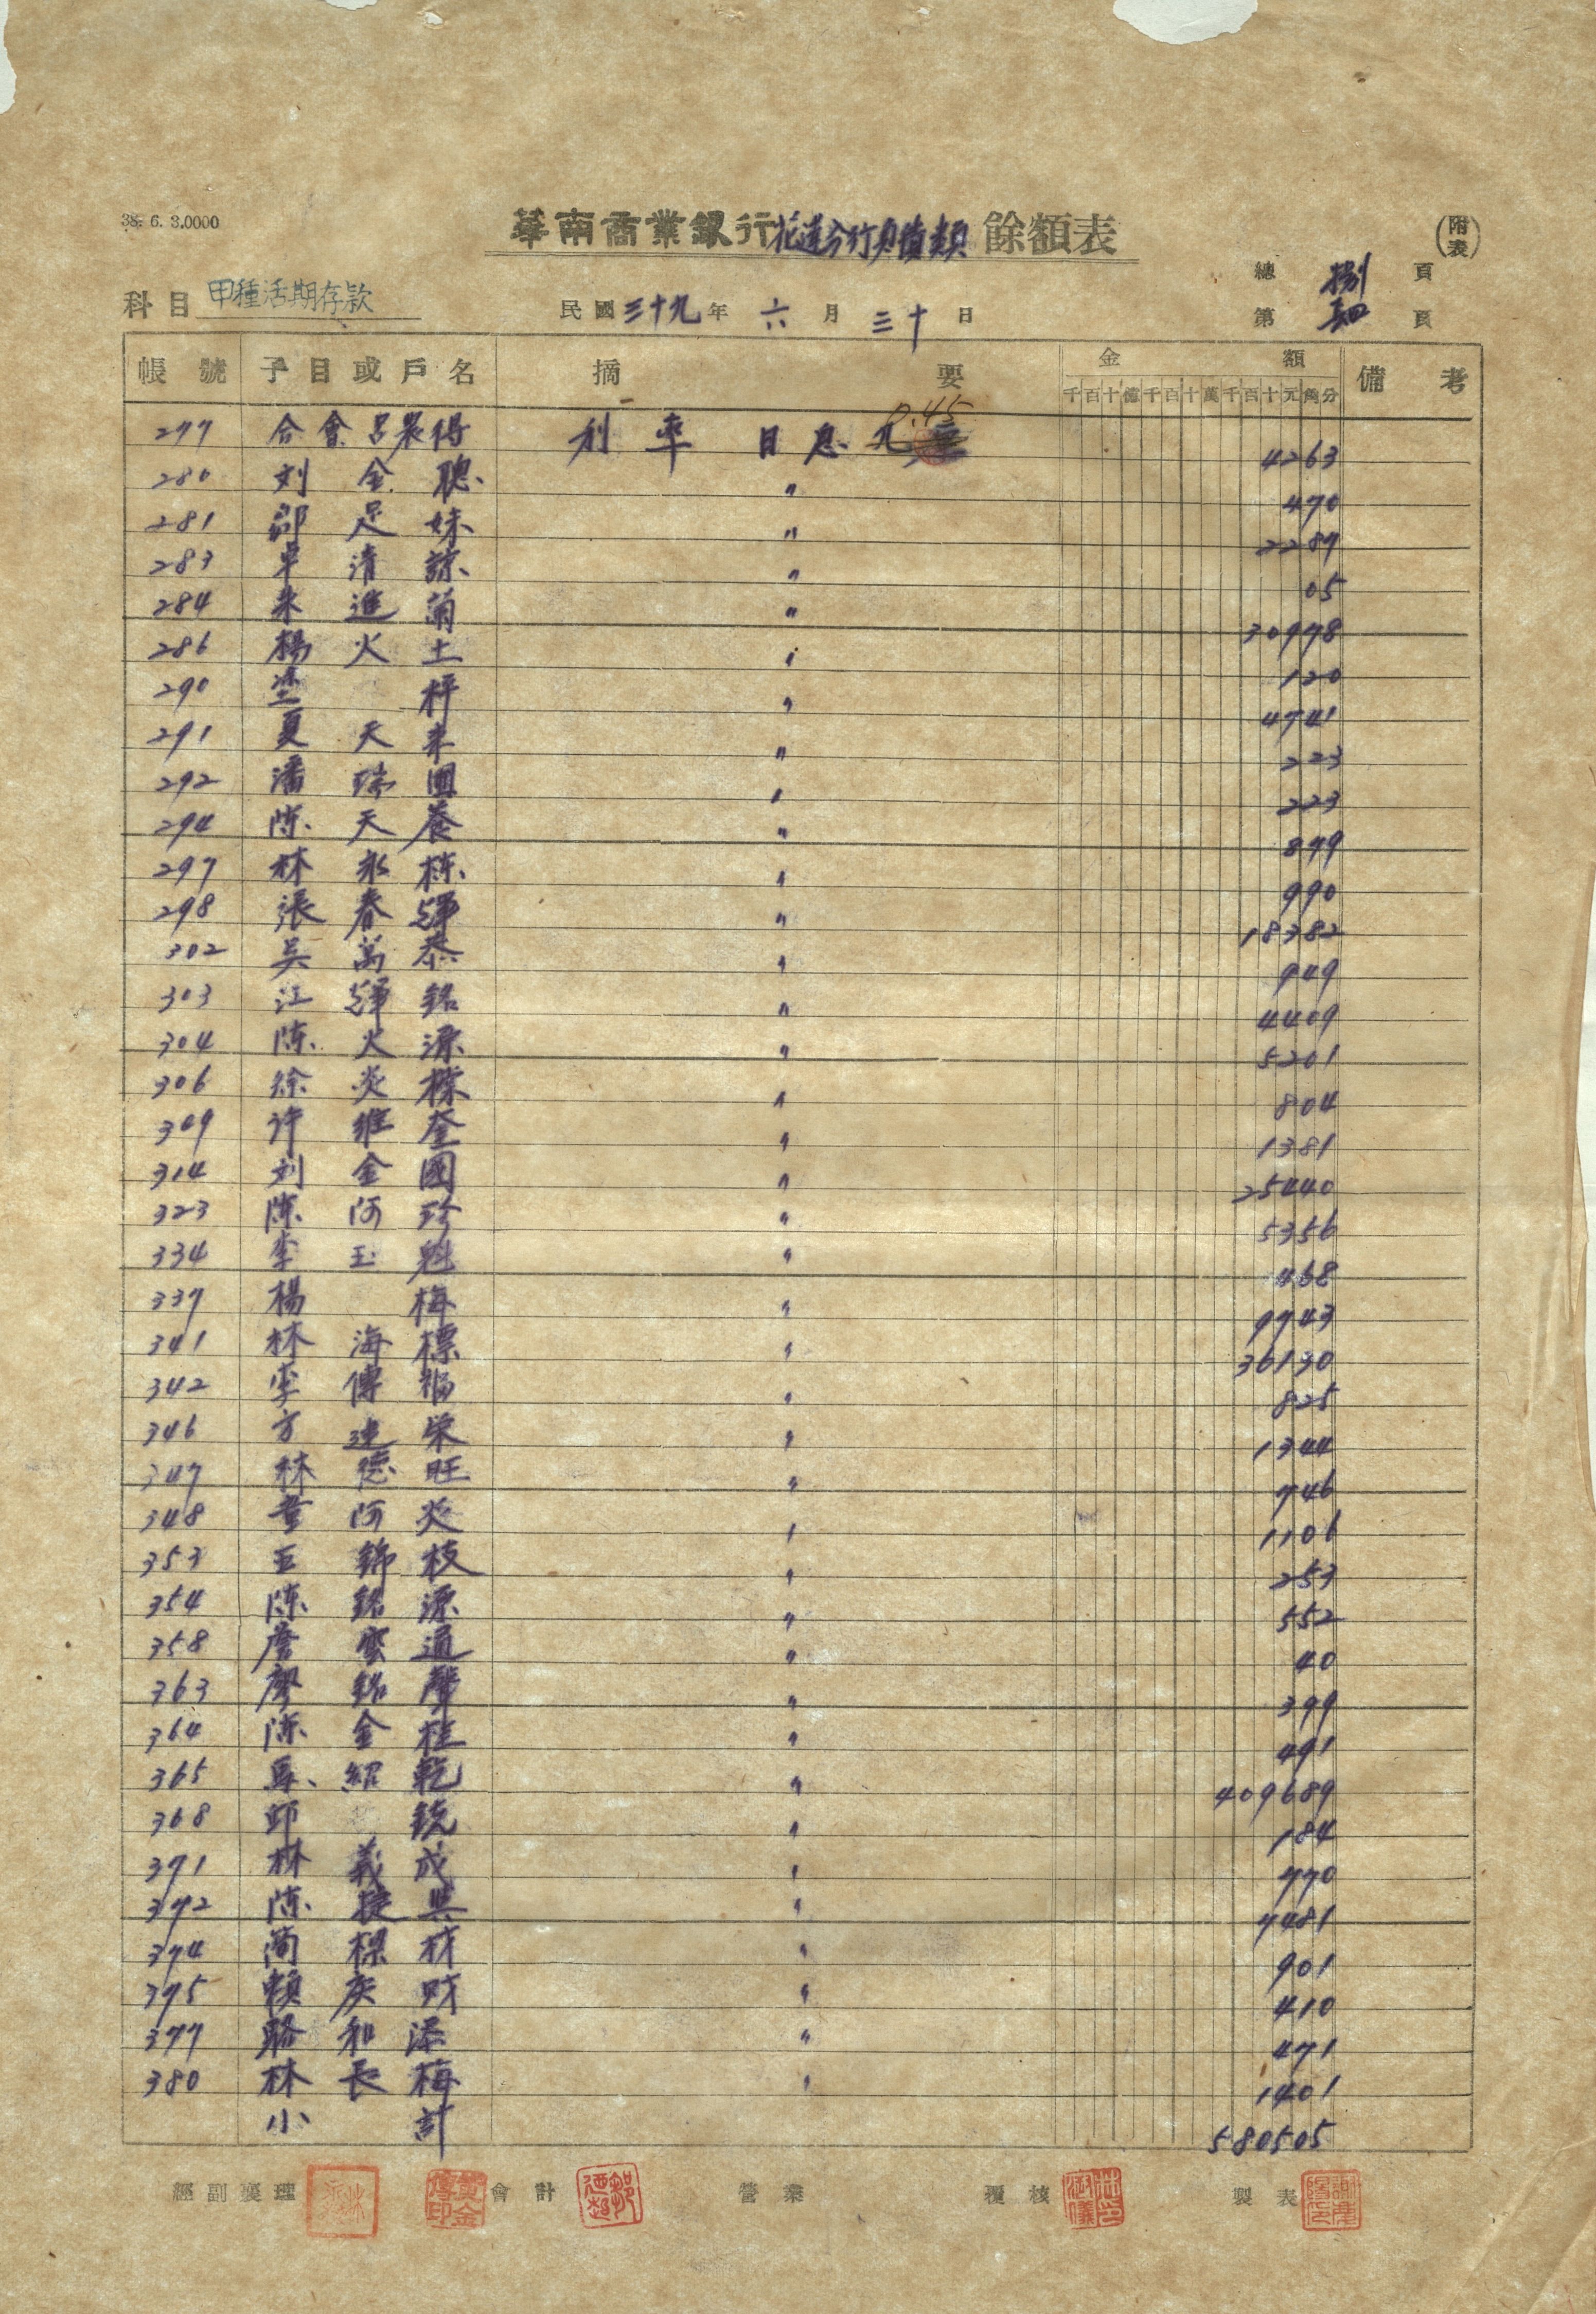 38. 6. 3.0000
華南商業銀行花蓮分行負債類餘額表
(附表)
總 捌 頁
科目 甲種活期存款 民國三十九年 六 月 三十 日
第 四 頁
帳號 子目或戶名 摘要 金額 備考
千百十億千百十萬千百十元角分
0.45
277 合會呂農得 利率 日息 4263
280 刘金聰 〃 470
281 邵足妹 〃 2287
283 卓清諒 〃 05
284 朱進菊 〃 30978
286 楊火土 〃 120
290 塗枰 〃 4741
291 夏天来 〃 223
292 潘瑞圍 〃 223
294 陳天養 〃 879
297 林水棟 〃 990
298 張春輝 〃 18382
302 吴萬恭 〃 949
303 江輝銘 〃 4409
304 陳火源 〃 5201
306 徐炎樑 〃 804
309 许維奎 〃 1381
314 刘金國 〃 25440
323 陳阿珍 〃 5356
334 李玉魁 〃 468
337 楊梅 〃 9743
341 林海標 〃 36130
342 李傳福 〃 825
346 方連栄 〃 1344
347 林德旺 〃 746
348 童阿炎 〃 1106
353 王錦枝 〃 253
354 陳銘源 〃 552
358 詹雲通 〃 40
363 廖銘聲 〃 399
364 陳金桂 〃 491
365 紹乾 〃 409689
368 邱統 〃 184
371 林義成 〃 770
372 陳捷興 〃 7481
374 简樑材 〃 901
375 賴庆财 〃 410
377 駱和添 〃 471
380 林長梅 〃 1401
小計 580505
經副襄理 會計 營業 覆核 製表